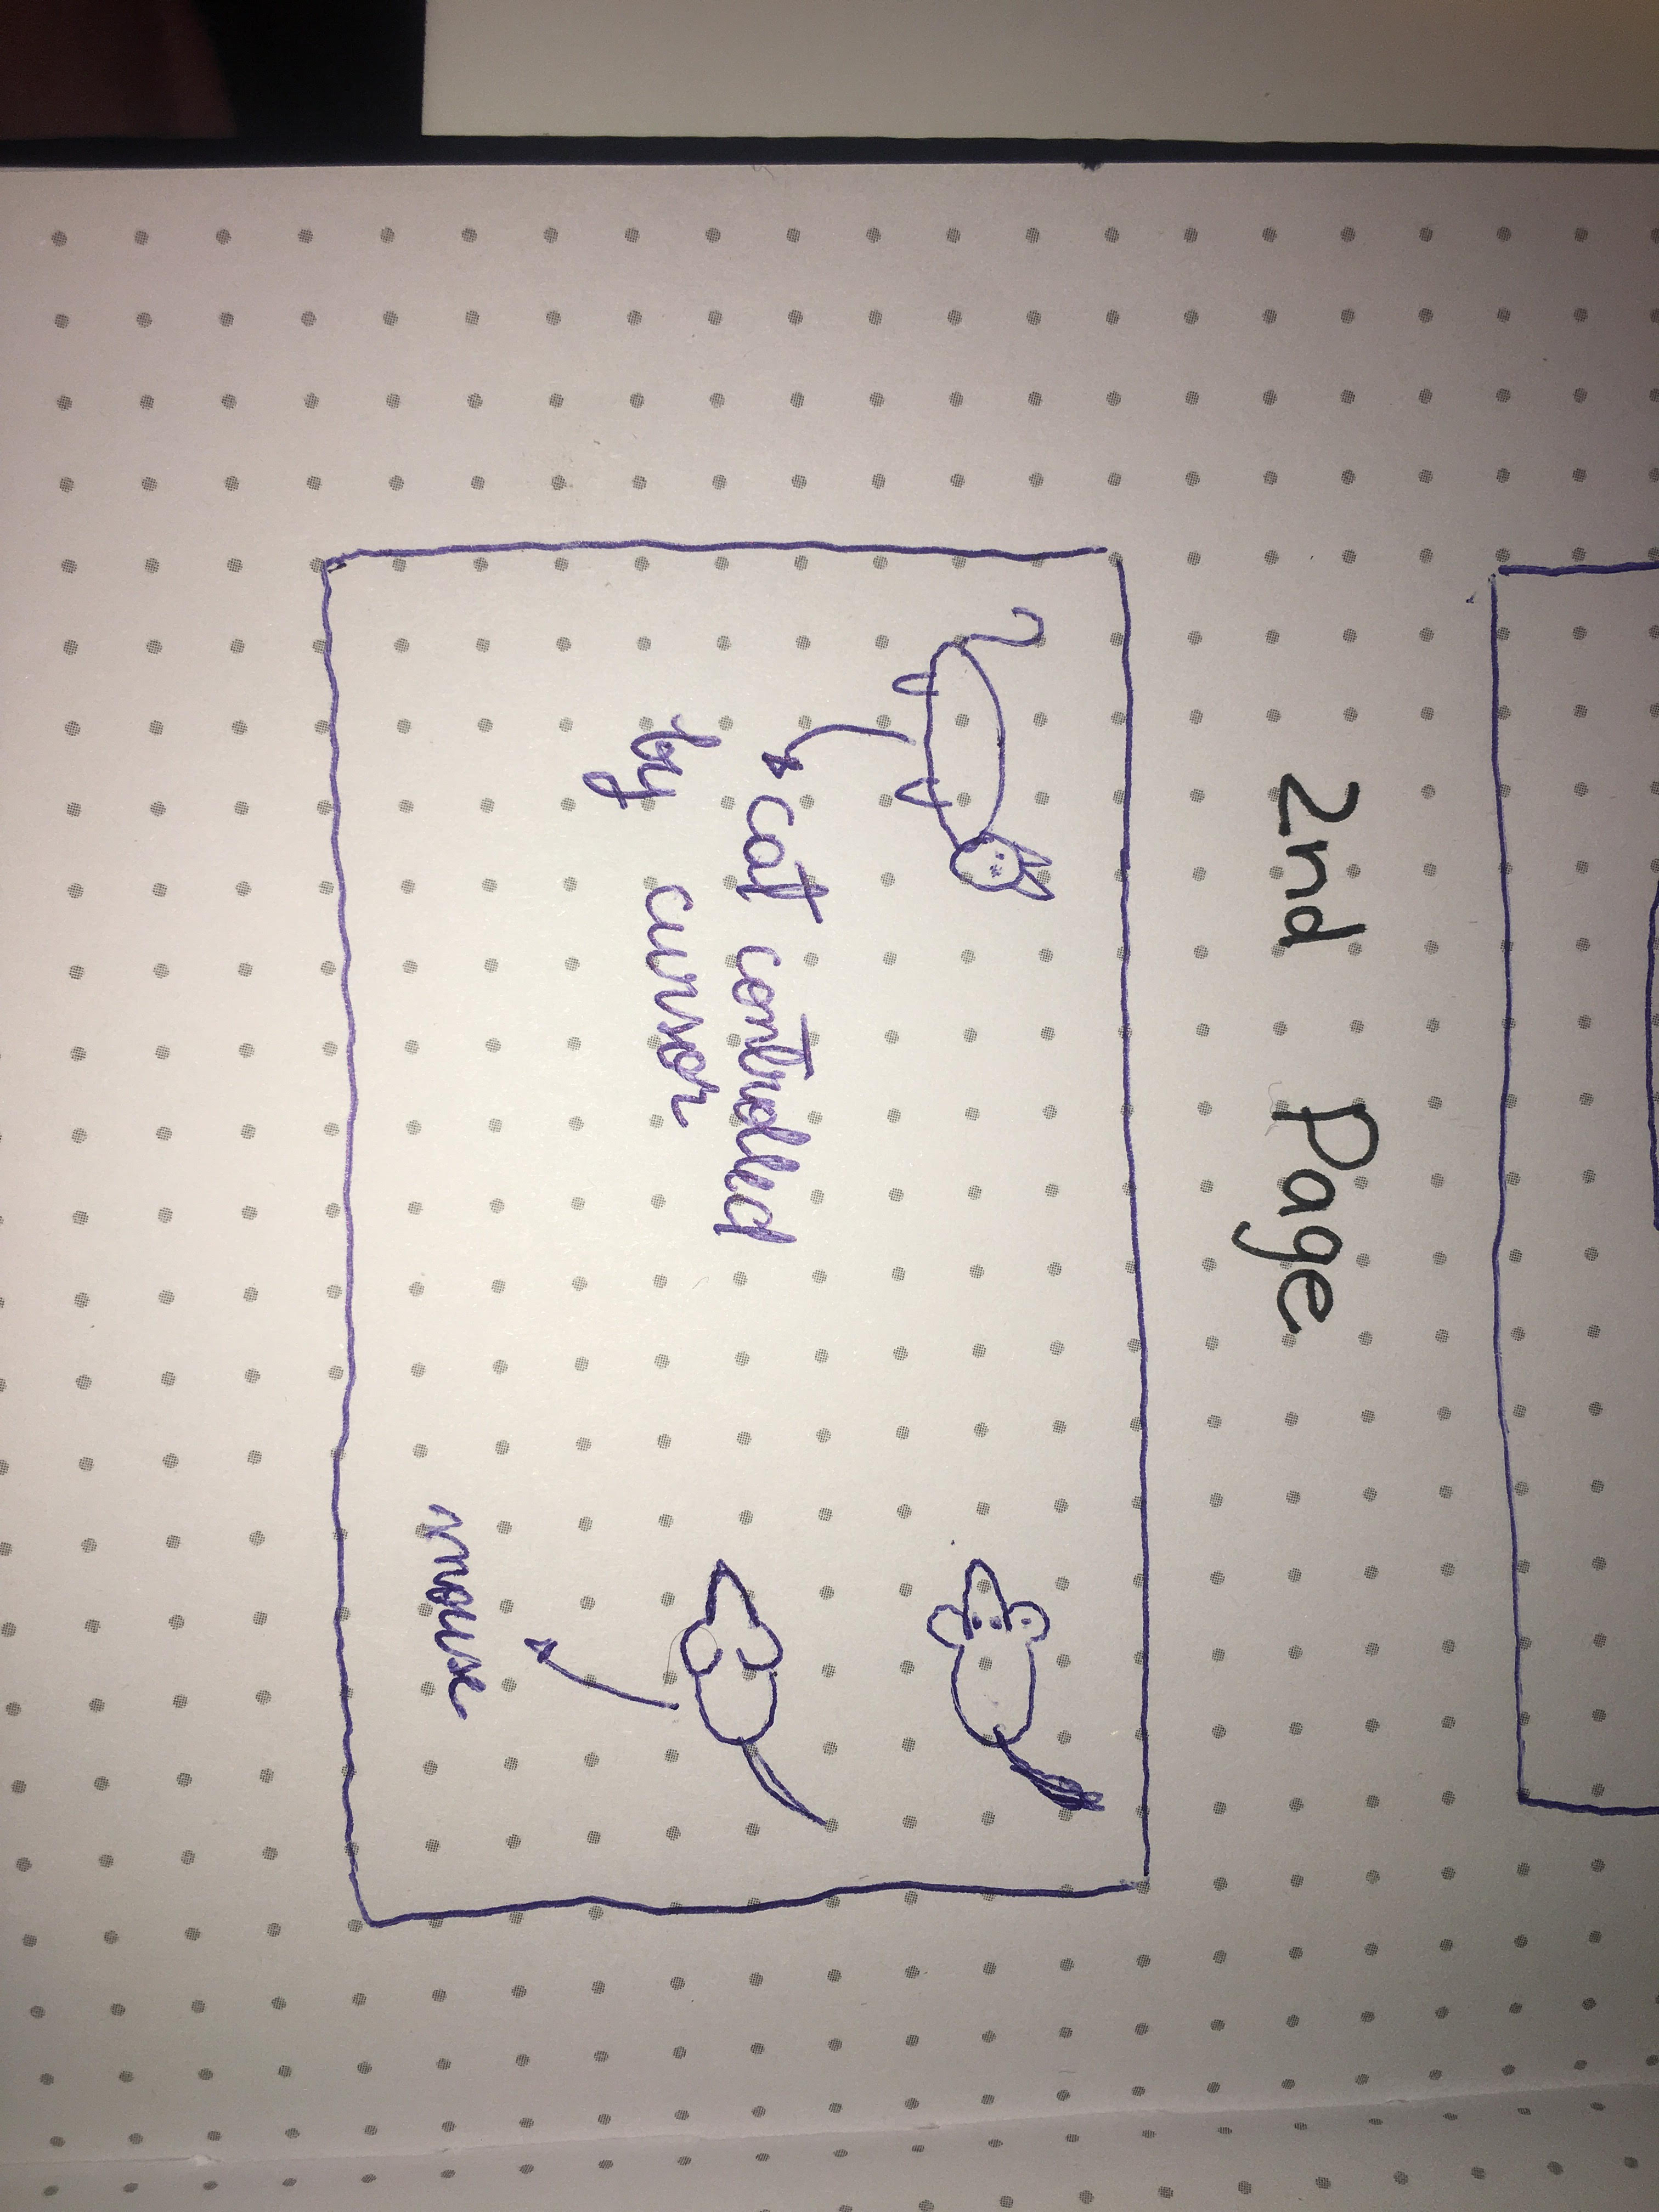 2nd Page
cat controlled
by cursor
mouse